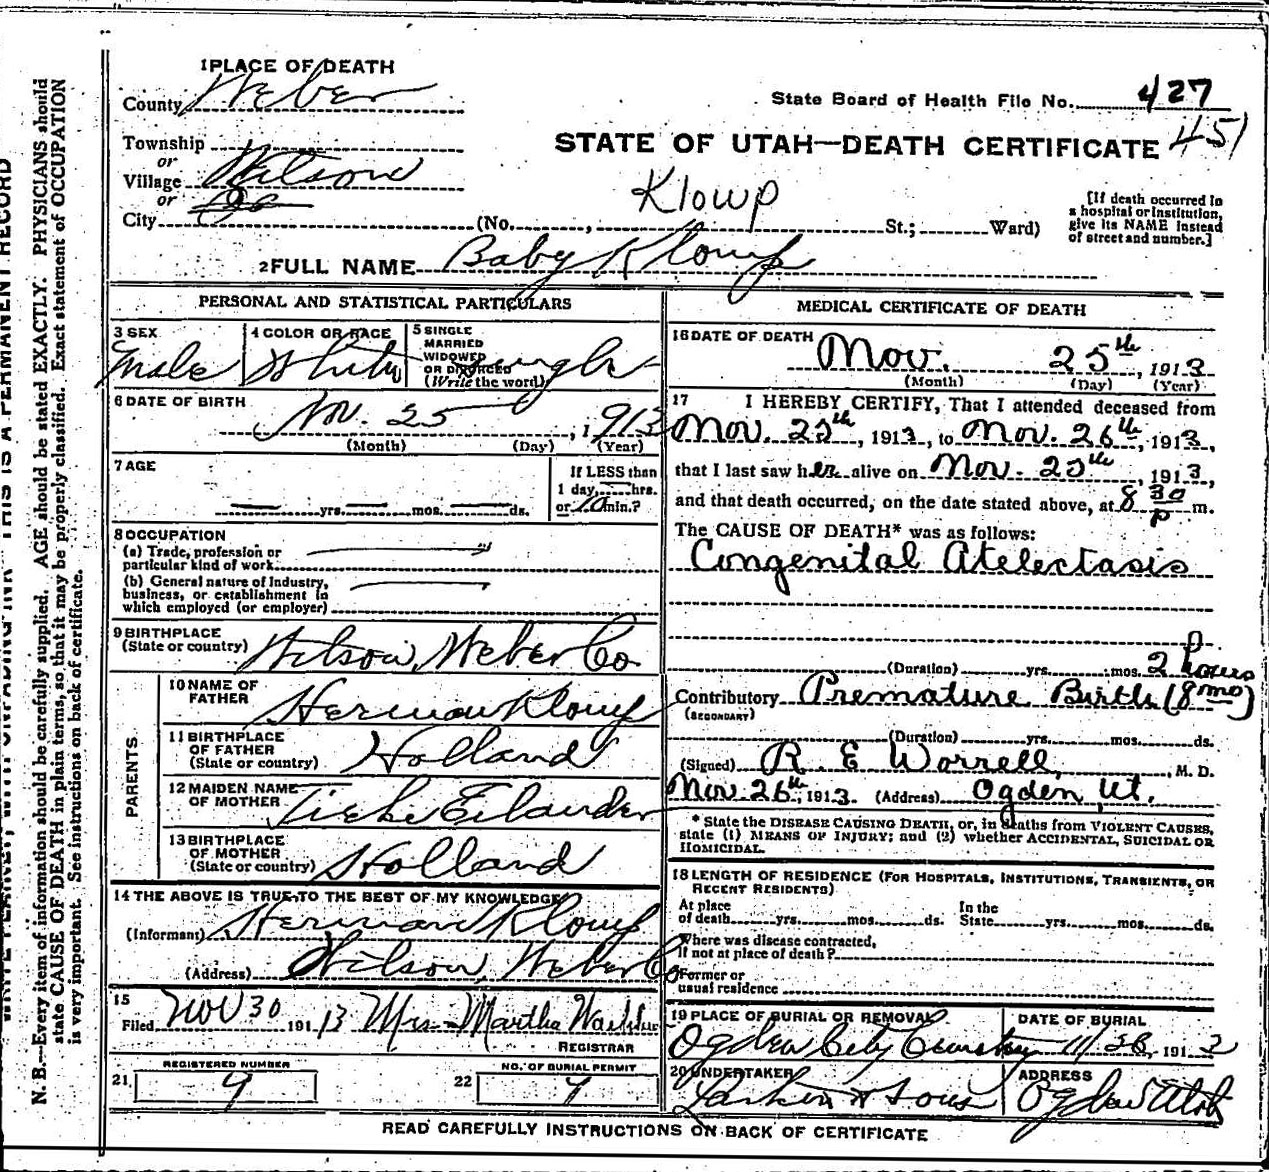 1 PLACE OF DEATH
County Weber
State Board of Health File No. 427
451
STATE OF UTAH—DEATH CERTIFICATE
Township
or
Village Wilson
or
City
Klowp
(No. , St.; Ward)
[If death occurred in
a hospital or institution,
give its NAME instead
of street and number.]
2 FULL NAME Baby Klomp
PERSONAL AND STATISTICAL PARTICULARS
3 SEX
Male
4 COLOR OR RACE
White
5 SINGLE
MARRIED
WIDOWED
OR DIVORCED
(Write the word)
Single
6 DATE OF BIRTH
Nov. 25, 1913
(Month) (Day) (Year)
7 AGE
yrs. mos. ds.
If LESS than
1 day, hrs.
or 10 min.?
8 OCCUPATION
(a) Trade, profession or
particular kind of work
(b) General nature of industry,
business, or establishment in
which employed (or employer)
9 BIRTHPLACE
(State or country) Wilson, Weber Co
PARENTS
10 NAME OF
FATHER Herman Klomp
11 BIRTHPLACE
OF FATHER
(State or country) Holland
12 MAIDEN NAME
OF MOTHER Tieke Eilander
13 BIRTHPLACE
OF MOTHER
(State or country) Holland
14 THE ABOVE IS TRUE TO THE BEST OF MY KNOWLEDGE
(Informant) Herman Klomp
(Address) Wilson, Weber Co
15
Filed Nov 30 1913 Mrs Martha
REGISTRAR
REGISTERED NUMBER
21 9
NO. OF BURIAL PERMIT
22 9
MEDICAL CERTIFICATE OF DEATH
16 DATE OF DEATH
Nov. 25th, 1913
(Month) (Day) (Year)
17 I HEREBY CERTIFY, That I attended deceased from
Nov. 25th, 1913, to Nov. 26th, 1913,
that I last saw her alive on Nov. 25th, 1913,
and that death occurred, on the date stated above, at 8 30 P m.
The CAUSE OF DEATH* was as follows:
Congenital Atelectasis
(Duration) yrs. mos. 2 hours
Contributory Premature Birth (8 mo)
(SECONDARY)
(Duration) yrs. mos. ds.
(Signed) R. E. Worrell, M. D.
Nov 26th, 1913. (Address) Ogden Ut.
* State the DISEASE CAUSING DEATH, or, in deaths from VIOLENT CAUSES,
state (1) MEANS OF INJURY; and (2) whether ACCIDENTAL, SUICIDAL OR
HOMICIDAL.
18 LENGTH OF RESIDENCE (FOR HOSPITALS, INSTITUTIONS, TRANSIENTS, OR
RECENT RESIDENTS)
At place
of death yrs. mos. ds.
In the
State yrs. mos. ds.
Where was disease contracted,
If not at place of death?
Former or
usual residence
19 PLACE OF BURIAL OR REMOVAL
Ogden City Cemetery
DATE OF BURIAL
11/26, 1913
20 UNDERTAKER
Larkin & Sons
ADDRESS
Ogden Utah
READ CAREFULLY INSTRUCTIONS ON BACK OF CERTIFICATE
THIS IS A PERMANENT RECORD
N. B.—Every item of information should be carefully supplied. AGE should be stated EXACTLY. PHYSICIANS should
state CAUSE OF DEATH in plain terms, so that it may be properly classified. Exact statement of OCCUPATION
is very important. See instructions on back of certificate.